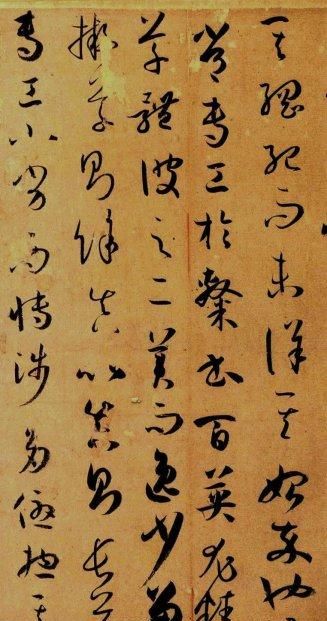 其綱紀而未詳其始卒也
常專工於隸書百英尤精
草體彼之二美而逸少兼
擬草則餘真比真則長草
專工小劣而博涉多優總其